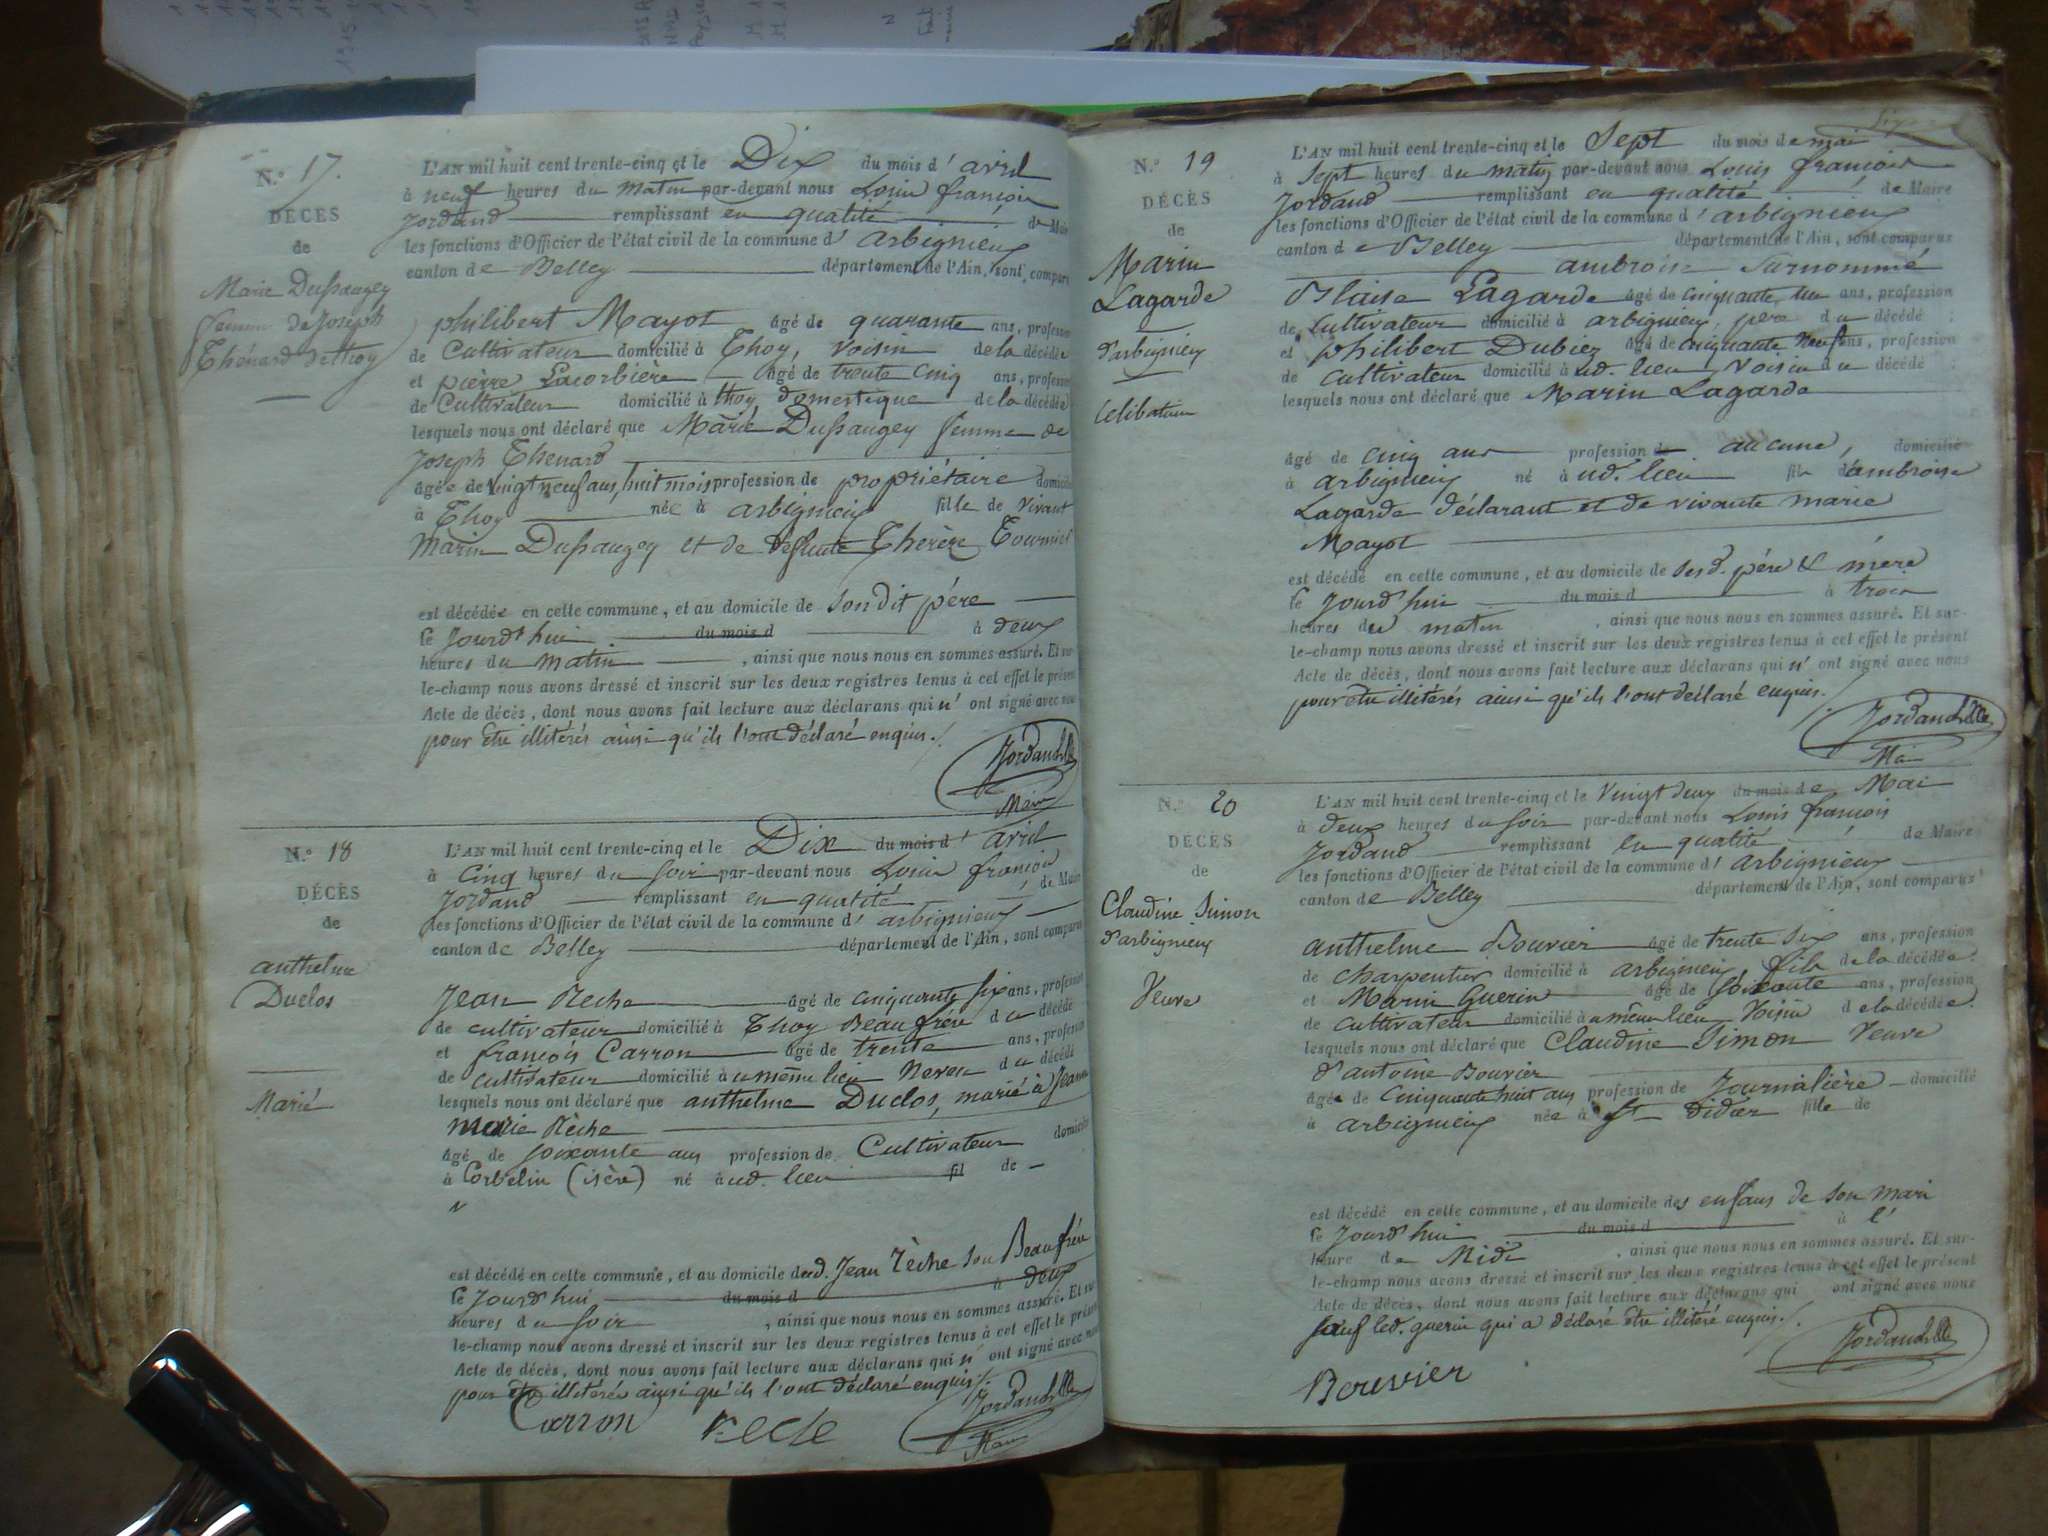 N.° 17.
DÉCÈS
de
Marie Dussaugey
femme de Joseph
Thénard de thoy
L'AN mil huit cent trente-cinq et le Dix du mois d'avril
à neuf heures du matin par-devant nous Louis françois
Jordand remplissant en qualité de Maire
les fonctions d'Officier de l'état civil de la commune d'arbignieux
canton de Belley département de l'Ain, sont comparus
philibert Mayot âgé de quarante ans, profession
de Cultivateur domicilié à Thoy, voisin de la décédée
et pierre Lacorbière âgé de trente cinq ans, profession
de Cultivateur domicilié à thoy domestique de la décédée
lesquels nous ont déclaré que Marie Dussaugey femme de
Joseph Thenard
âgée de vingt neuf ans, huit mois profession de propriétaire domicilié
à Thoy née à arbignieux fille de vivant
Marin Dussaugey et de defunte Therèse Tournier
est décédée en cette commune, et au domicile de son dit père
le jourd'hui du mois d à deux
heures du matin, ainsi que nous nous en sommes assuré. Et sur-
le-champ nous avons dressé et inscrit sur les deux registres tenus à cet effet le présent
Acte de décès, dont nous avons fait lecture aux déclarans qui n'ont signé avec nous
pour être illitérés ainsi qu'ils l'ont déclaré enquis./.
Jordand
Maire
N.° 18
DÉCÈS
de
anthelme
Duclos
Marié
L'AN mil huit cent trente-cinq et le Dix du mois d'avril
à Cinq heures du soir par-devant nous Louis françois
Jordand remplissant en qualité de Maire
les fonctions d'Officier de l'état civil de la commune d'arbignieux
canton de Belley département de l'Ain, sont comparus
Jean Rèche âgé de cinquante six ans, profession
de cultivateur domicilié à Thoy Beau frère du décédé
et françois Carron âgé de trente ans, profession
de cultivateur domicilié à u même lieu Neveu du décédé
lesquels nous ont déclaré que anthelme Duclos, marié à Jeanne
marie Rèche
âgé de soixante ans profession de Cultivateur domicilié
à Corbelin (isère) né à ud. lieu fil de
est décédé en cette commune, et au domicile dud. Jean Rèche son Beau frère
le jourd'hui du mois d à deux
heures du soir, ainsi que nous nous en sommes assuré. Et sur-
le-champ nous avons dressé et inscrit sur les deux registres tenus à cet effet le présent
Acte de décès, dont nous avons fait lecture aux déclarans qui n'ont signé avec nous
pour être illitérés ainsi qu'ils l'ont déclaré enquis/.
Carron
Jordand
Maire
N.° 19
DÉCÈS
de
Marin
Lagarde
d'arbignieux
Celibataire
L'AN mil huit cent trente-cinq et le Sept du mois de mai
à Sept heures du matin par-devant nous Louis françois
Jordand remplissant en qualité de Maire
les fonctions d'Officier de l'état civil de la commune d'arbignieux
canton de Belley département de l'Ain, sont comparus
ambroise surnommé
Blaise Lagarde âgé de cinquante un ans, profession
de Cultivateur domicilié à arbignieux, père du décédé
et philibert Dubiez âgé de cinquante neuf ans, profession
de cultivateur domicilié à ud. lieu, voisin du décédé
lesquels nous ont déclaré que Marin Lagarde
âgé de cinq ans profession de aucune, domicilié
à arbignieux né à ud. lieu fils d'ambroise
Lagarde déclarant et de vivante marie
Mayot
est décédé en cette commune, et au domicile de sesd. père & mère
le jourd'hui du mois d à trois
heures du matin, ainsi que nous nous en sommes assuré. Et sur-
le-champ nous avons dressé et inscrit sur les deux registres tenus à cet effet le présent
Acte de décès, dont nous avons fait lecture aux déclarans qui n'ont signé avec nous
pour être illitérés ainsi qu'ils l'ont déclaré enquis./.
Jordand
Maire
N.° 20
DÉCÈS
de
Claudine Simon
d'arbignieux
Veuve
L'AN mil huit cent trente-cinq et le Vingt deux du mois de Mai
à deux heures du soir par-devant nous Louis françois
Jordand remplissant en qualité de Maire
les fonctions d'Officier de l'état civil de la commune d'arbignieux
canton de Belley département de l'Ain, sont comparus
anthelme Bouvier âgé de trente six ans, profession
de charpentier domicilié à arbignieux, fils de la décédée
et Marin Guerin âgé de soixante ans, profession
de cultivateur domicilié à u même lieu voisin de la décédée
lesquels nous ont déclaré que Claudine Simon Veuve
d'antoine Bouvier
âgée de Cinquante huit ans profession de Journalière domicilié
à arbignieux née à St didier fille de
est décédé en cette commune, et au domicile des enfans de son mari
le jourd'hui du mois d à l'
heure de Midi, ainsi que nous nous en sommes assuré. Et sur-
le-champ nous avons dressé et inscrit sur les deux registres tenus à cet effet le présent
Acte de décès, dont nous avons fait lecture aux déclarans qui ont signé avec nous
sauf led. guerin qui a déclaré être illitéré enquis./.
Bouvier
Jordand